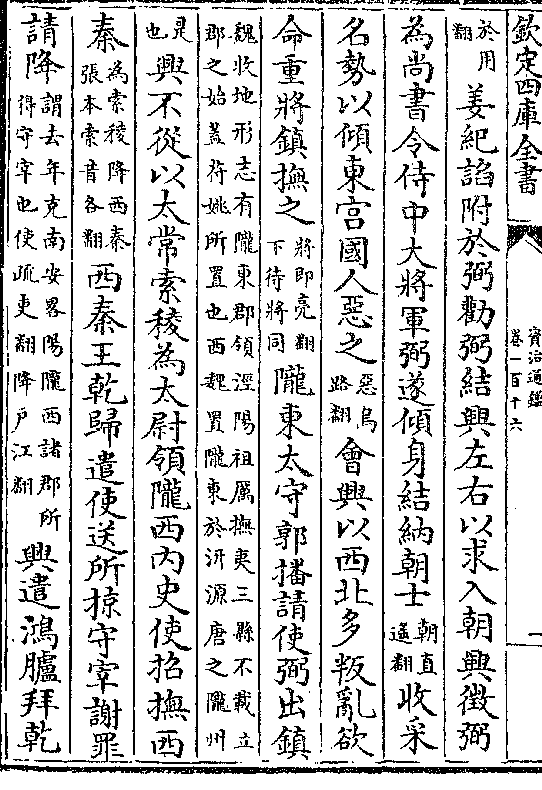 欽定四庫全書
資治通鑑
卷一百十六
一
於用
翻
姜紀諂附於弼勸弼結興左右以求入朝興徵弼
為尚書令侍中大將軍弼遂傾身結納朝士
朝直
遥翻
收采
名勢以傾東宮國人惡之
惡烏
路翻
會興以西北多叛亂欲
命重將鎮撫之
將即亮翻
下待將同
隴東太守郭播請使弼出鎮
魏收地形志有隴東郡領涇陽祖厲撫夷三縣不載立
郡之始蓋苻姚所置也西魏置隴東於汧源唐之隴州
是
也
興不從以太常索稜為太尉領隴西內史使招撫西
秦
為索稜降西秦
張本索昔各翻
西秦王乾歸遣使送所掠守宰謝罪
請降
謂去年克南安畧陽隴西諸郡所
得守宰也使疏吏翻降戶江翻
興遣鴻臚拜乾